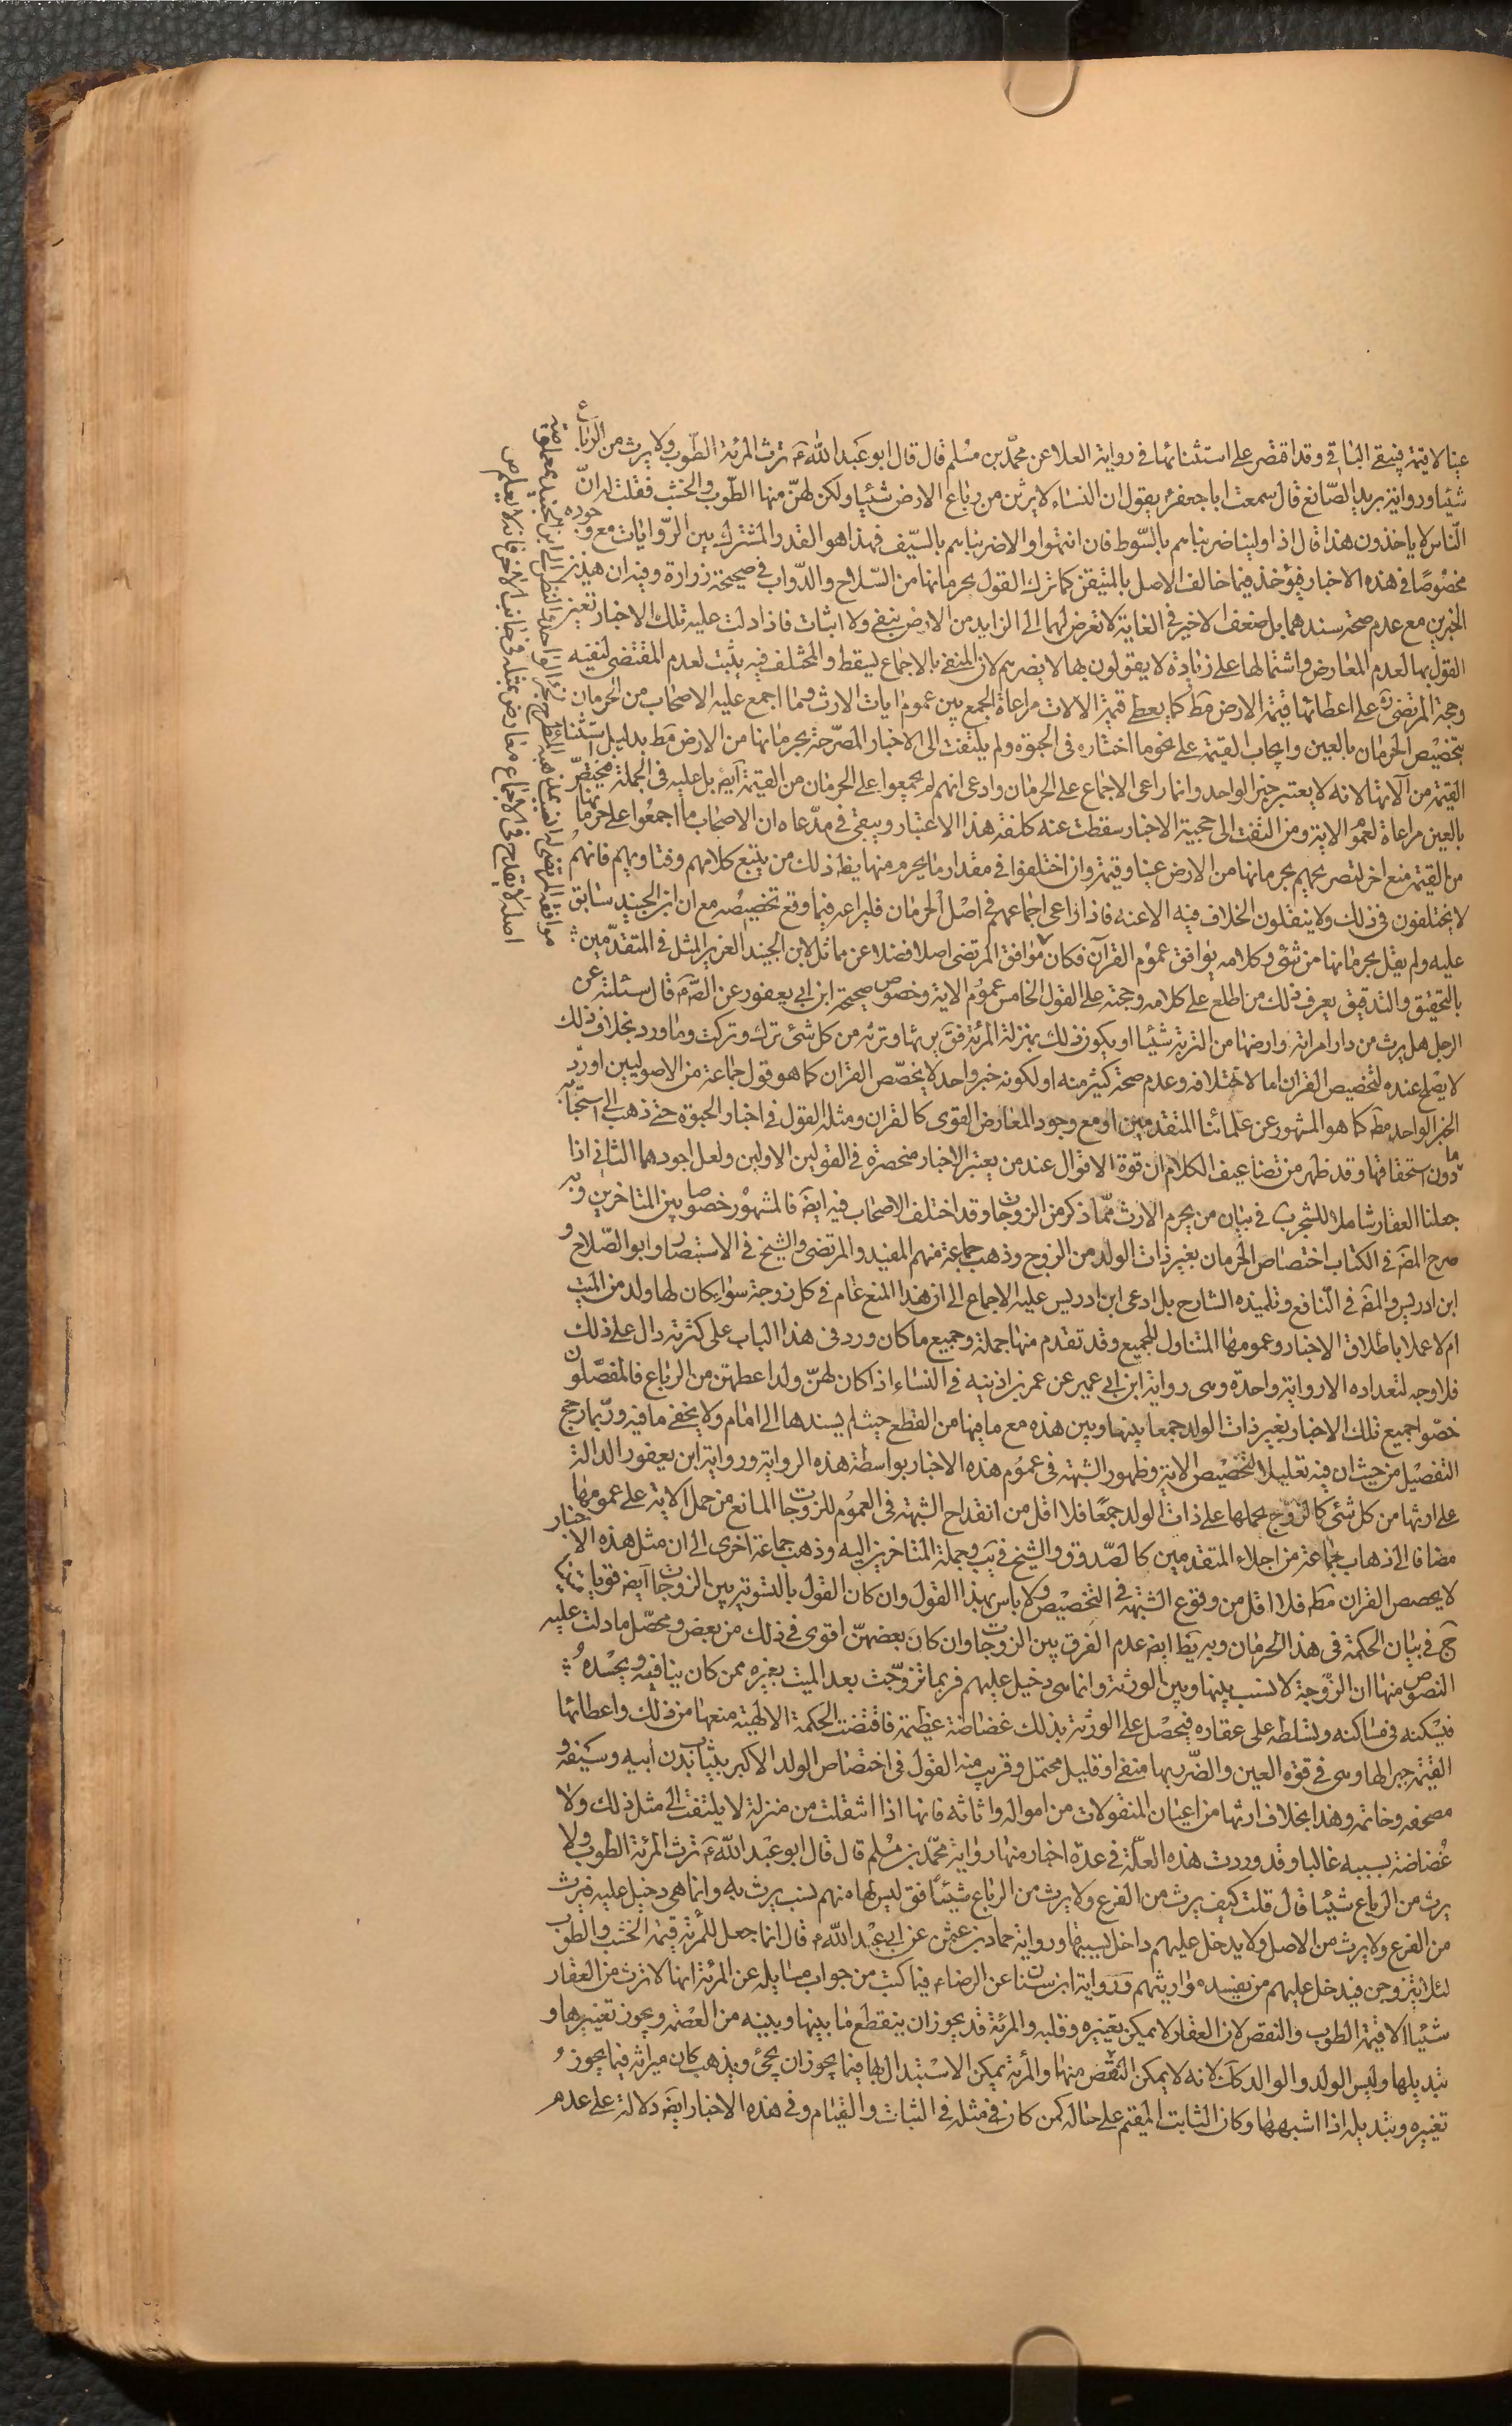 عينا لا قيمة فيبقى الباقي وقد اقتصر على استثنائها في رواية العلا عن محمد بن مسلم قال قال ابو عبد الله ع ترث المرئة الطوب ولا يرث من الرباع
شيئا ورواية يزيد الصائغ قال سمعت ابا جعفر ع يقول ان النساء لا يرثن من رباع الارض شيئا ولكن لهن منها الطوب والخشب فقلت له ان
الناس لا ياخذون هذا قال اذا ولينا ضربناهم بالسوط فان انتهوا والا ضربناهم بالسيف فهذا هو القدر المشترك بين الروايات مع وجوده
مخصوصا في هذه الاخبار فيؤخذ فيما خالف الاصل بالمتيقن كما ترك القول بحرمانها من السلاح والدواب في صحيحة زرارة وفيه ان هذين
الخبرين مع عدم صحة سندهما بل ضعف الاخير في الغاية لا تعرض لهما الى الزايد من الارض بنفي ولا اثبات فاذا دلت عليه تلك الاخبار تعين
القول بها لعدم المعارض واشتمالها على زيادة لا يقولون بها لا يضرهم لان المنفي بالاجماع يسقط والمختلف فيه يثبت لعدم المقتضي لنفيه
وحجة المرتضى ره على اعطائها قيمة الارض مط كما يعطى قيمة الالات مراعاة الجمع بين عموم ايات الارث وما اجمع عليه الاصحاب من الحرمان
بتخصيص الحرمان بالعين وايجاب القيمة على نحو ما اختاره في الحبوة ولم يلتفت الى الاخبار المصرحة بحرمانها من الارض مط بدليل استثناء
القيمة من آلاتها لانه لا يعتبر خبر الواحد وانما راعى الاجماع على الحرمان وادعى انهم لم يجمعوا على الحرمان من القيمة ايض بل عليه في الجملة فيختص
بالعين مراعاة لعموم الاية ومن التفت الى حجية الاخبار سقطت عنه كلفة هذا الاعتبار ويبقى في مدعاه ان الاصحاب ما اجمعوا على حرمانها
من القيمة منع اخر لتصريحهم بحرمانها من الارض عينا وقيمة وان اختلفوا في مقدار ما يحرم منها يظ ذلك من يتتبع كلامهم وفتاويهم فانهم
لا يختلفون في ذلك ولا ينقلون الخلاف فيه الا عنه فاذا راعى اجماعهم في اصل الحرمان فليراعه فيما وقع تخصيصه مع ان ابن الجنيد سابق
عليه ولم يقل بحرمانها من شئ وكلامه يوافق عموم القرآن فكان موافق المرتضى اصلا فضلا عن ماثل لابن الجنيد العزيز المثل في المتقدمين
بالتحقيق والتدقيق يعرف ذلك من اطلع على كلامه وحجة على القول الخامس عموم الاية وخصوص صحيحة ابن ابي يعفور عن الص ع قال سئلته عن
الرجل هل يرث من دار امراته وارضها من التربة شيئا او يكون ذلك بمنزلة المرئة فق يرثها وترثه من كل شئ ترك وتركت وما ورد بخلاف ذلك
لا يصلح عنده لتخصيص القران اما لاختلافه وعدم صحة كثير منه او لكونه خبر واحد لا يخصص القران كما هو قول جماعة من الاصوليين او رد
الخبر الواحد مط كما هو المشهور عن علمائنا المتقدمين او مع وجود المعارض القوى كالقران ومثله القول في اخبار الحبوة حتى ذهب الى استحبابه
دون استحقاقها وقد ظهر من تضاعيف الكلام ان قوة الاقوال عند من يعتبر الاخبار منحصرة في القولين الاولين ولعل اجودهما الثاني اذا
جعلنا العقار شاملا للشجر ب في بيان من يحرم الارث مما ذكر من الزوجات وقد اختلف الاصحاب فيه ايض فالمشهور خصوصا بين المتاخرين وبه
صرح المص في الكتاب اختصاص الحرمان بغير ذات الولد من الزوج وذهب جماعة منهم المفيد والمرتضى والشيخ في الاستبصار وابو الصلاح و
ابن ادريس والمص في النافع وتلميذه الشارح بل ادعى ابن ادريس عليه الاجماع الى ان هذا المنع عام في كل زوجة سواء كان لها ولد من الميت
ام لا عملا باطلاق الاخبار وعمومها المتناول للجميع وقد تقدم منها جملة وجميع ما كان ورد في هذا الباب على كثرته دال على ذلك
فلا وجه لتعداده الا رواية واحدة وهى رواية ابن ابي عمير عن عمر بن اذينه في النساء اذا كان لهن ولد اعطين من الرباع فالمفصلون
خصوا جميع تلك الاخبار بغير ذات الولد جمعا بينها وبين هذه مع ما فيها من القطع حيث لم يسندها الى امام ولا يخفى ما فيه وربما رجح
التفصيل من حيث ان فيه تقليلا لتخصيص الاية وظهور الشبهة في عموم هذه الاخبار بواسطة هذه الرواية ورواية ابن يعفور الدالة
على ارثها من كل شئ كالزوج بحملها على ذات الولد جمعا فلا اقل من انقداح الشبهة في العموم للزوجات المانع من حمل الاية على عمومها
مضافا الى ذهاب جماعة من اجلاء المتقدمين كالصدوق والشيخ في يب وجملة المتاخرين اليه وذهب جماعة اخرى الى ان مثل هذه الاخبار
لا يخصص القران مط فلا اقل من وقوع الشبهة في التخصيص ولا باس بهذا القول وان كان القول بالتسوية بين الزوجات ايض قويا
ج في بيان الحكمة في هذا الحرمان وبه يظ ايض عدم الفرق بين الزوجات وان كان بعضهن اقوى في ذلك من بعض ومحصل ما دلت عليه
النصوص منها ان الزوجة لا نسب بينها وبين الورثة وانما هى دخيل عليهم فربما تزوجت بعد الميت بغيره ممن كان ينافيه ويحسده
فيسكنه في مساكنه وتسلطه على عقاره فيحصل على الورثة بذلك غضاضة عظيمة فاقتضت الحكمة الالهية منعها من ذلك واعطائها
القيمة جبرا لها وهى في قوة العين والضرر بها منفي او قليل محتمل وقريب منه القول في اختصاص الولد الاكبر بثياب بدن ابيه وسيفه و
مصحفه وخاتمه وهذا بخلاف ارثها من اعيان المنقولات من امواله واثاثه فانها اذا انتقلت من منزلة لا يلتفت الى مثل ذلك ولا
غضاضة بسببه غالبا وقد وردت هذه العلة في عدة اخبار منها رواية محمد بن مسلم قال قال ابو عبد الله ع ترث المرئة الطوب ولا
يرث من الرباع شيئا قال قلت كيف يرث من الفرع ولا يرث من الرباع شيئا فق ليس لها منهم نسب يرث به وانما هى دخيل عليهم فيرث
من الفرع ولا يرث من الاصل ولا يدخل عليهم داخل بسببها ورواية حماد بن عثمن عن ابي عبد الله ع قال انما جعل للمرئة قيمة الخشب والطوب
لئلا يتزوجن فيدخل عليهم من يفسد مواريثهم ورواية ابن سنان عن الرضا ع فيما كتب من جواب مسايله عن المرئة انها لا ترث من العقار
شيئا الا قيمة الطوب والنقض لان العقار لا يمكن تغييره وقلبه والمرئة قد يجوز ان ينقطع ما بينها وبينه من العصمة ويجوز تغييرها و
تبديلها وليس الولد والوالد كك لانه لا يمكن التقضى منها والمرئة يمكن الاستبدال بها فيما يجوز ان يجئ ويذهب كان ميراثه فيما يجوز
تغييره وتبديله اذا اشبهها وكان الثابت المقيم على حاله كمن كان في مثله في الثبات والقيام وفي هذه الاخبار ايض دلالة على عدم